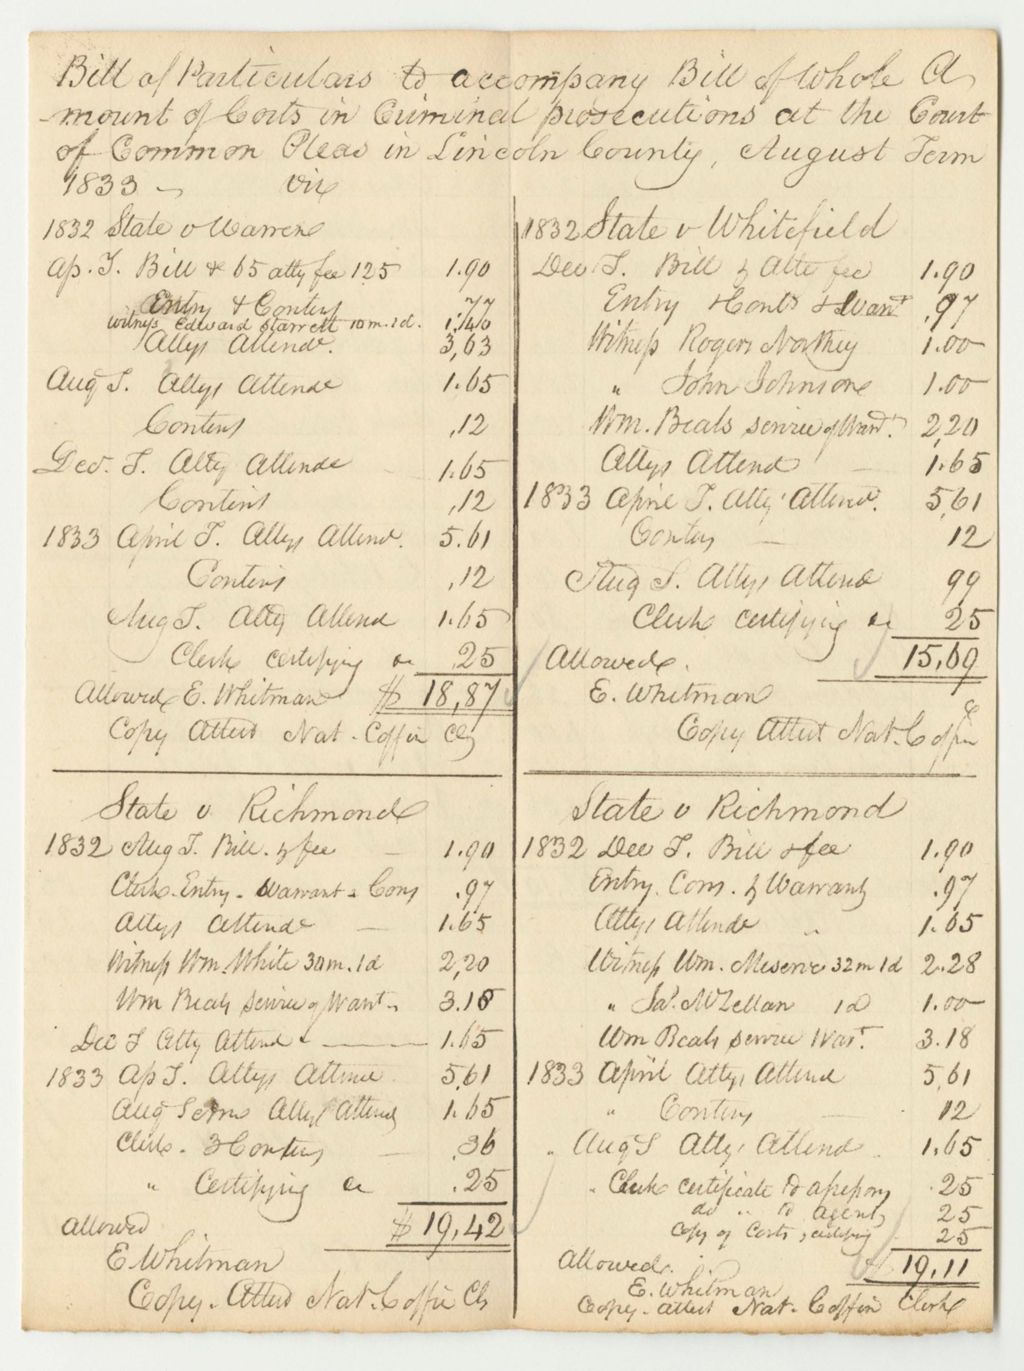 Bill of Particulars to accompany Bill of Whole A
-mount of Costs in Criminal prosecutions at the Court
of Common Pleas in Lincoln County, August Term
1833 viz
1832 State v Warren
Ap. T. Bill & 65 atty fee 125 1.90
Entry & Contins .77
Witness Edward Starrett 10 m. 1 d. 1.40
Attys Attendc. 3,63
Aug T. Attys Attendc 1.65
Contins ,12
Dec. T. Atty Attendc 1.65
Contins ,12
1833 April T. Attys Attend. 5.61
Contins ,12
Aug T. Atty Attend 1.65
Clerk certifying &c ,25
Allowed E. Whitman $ 18,87
Copy Attest Nat. Coffin Clk
1832 State v Whitefield
Dec T. Bill & Atty fee 1.90
Entry & Conts & Warrt ,97
Witness Rogers Northey 1.00
" John Johnson 1.00
Wm. Beals service of Warrt. 2,20
Attys Attend 1.65
1833 April T. Atty Attend. 5,61
Contins 12
Aug T. Attys Attend 99
Clerk certifying &c 25
Allowed. 15,69
E. Whitman
Copy Attest Nat. Coffin Cl
State v Richmond
1832 Aug T. Bill. & fee 1.90
Clerk. Entry. Warrant & Cons .97
Attys Attendc 1.65
Witness Wm. White 30 m. 1 d 2,20
Wm Beals service of Warrt. 3.18
Dec T Atty Attend 1.65
1833 Ap T. Attys Attend 5,61
Aug Term Attys Attend 1.65
Clerk. 3 Contins .36
" Certifying &c .25
allowed $ 19,42
E Whitman
Copy. Attest Nat. Coffin Clk
State v Richmond
1832 Dec T. Bill & fee 1.90
Entry. Cons. & Warrants .97
Attys Attendc " 1.65
Witness Wm. Meserve 32 m 1 d 2.28
" Ja. McLellan 1 d 1.00
Wm Beals service Warrt. 3.18
1833 April Attys Attend 5,61
" Contins 12
" Aug T Attys Attend. 1,65
" Clerk certificate to 25
do " to agent 25
Copy of Costs & certifying 25
Allowed. $ 19.11
E. Whitman
Copy. attest Nat. Coffin Clerk